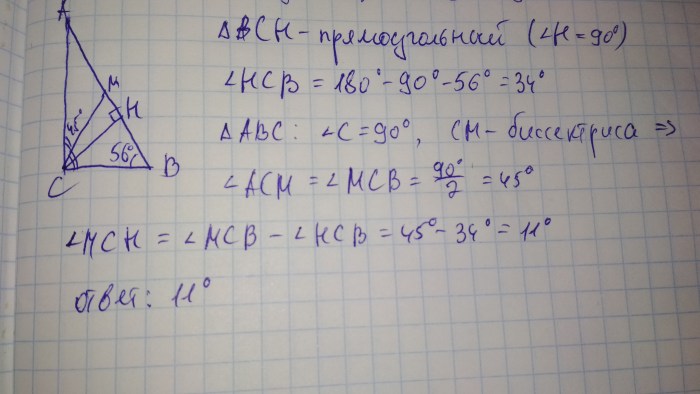 A
M
H
45°
56°
B
C
△BCH - прямоугольный (∠H = 90°)
∠HCB = 180° - 90° - 56° = 34°
△ABC: ∠C = 90°, CM - биссектриса ⇒
∠ACM = ∠MCB = 90°/2 = 45°
∠MCH = ∠MCB - ∠HCB = 45° - 34° = 11°
ответ: 11°